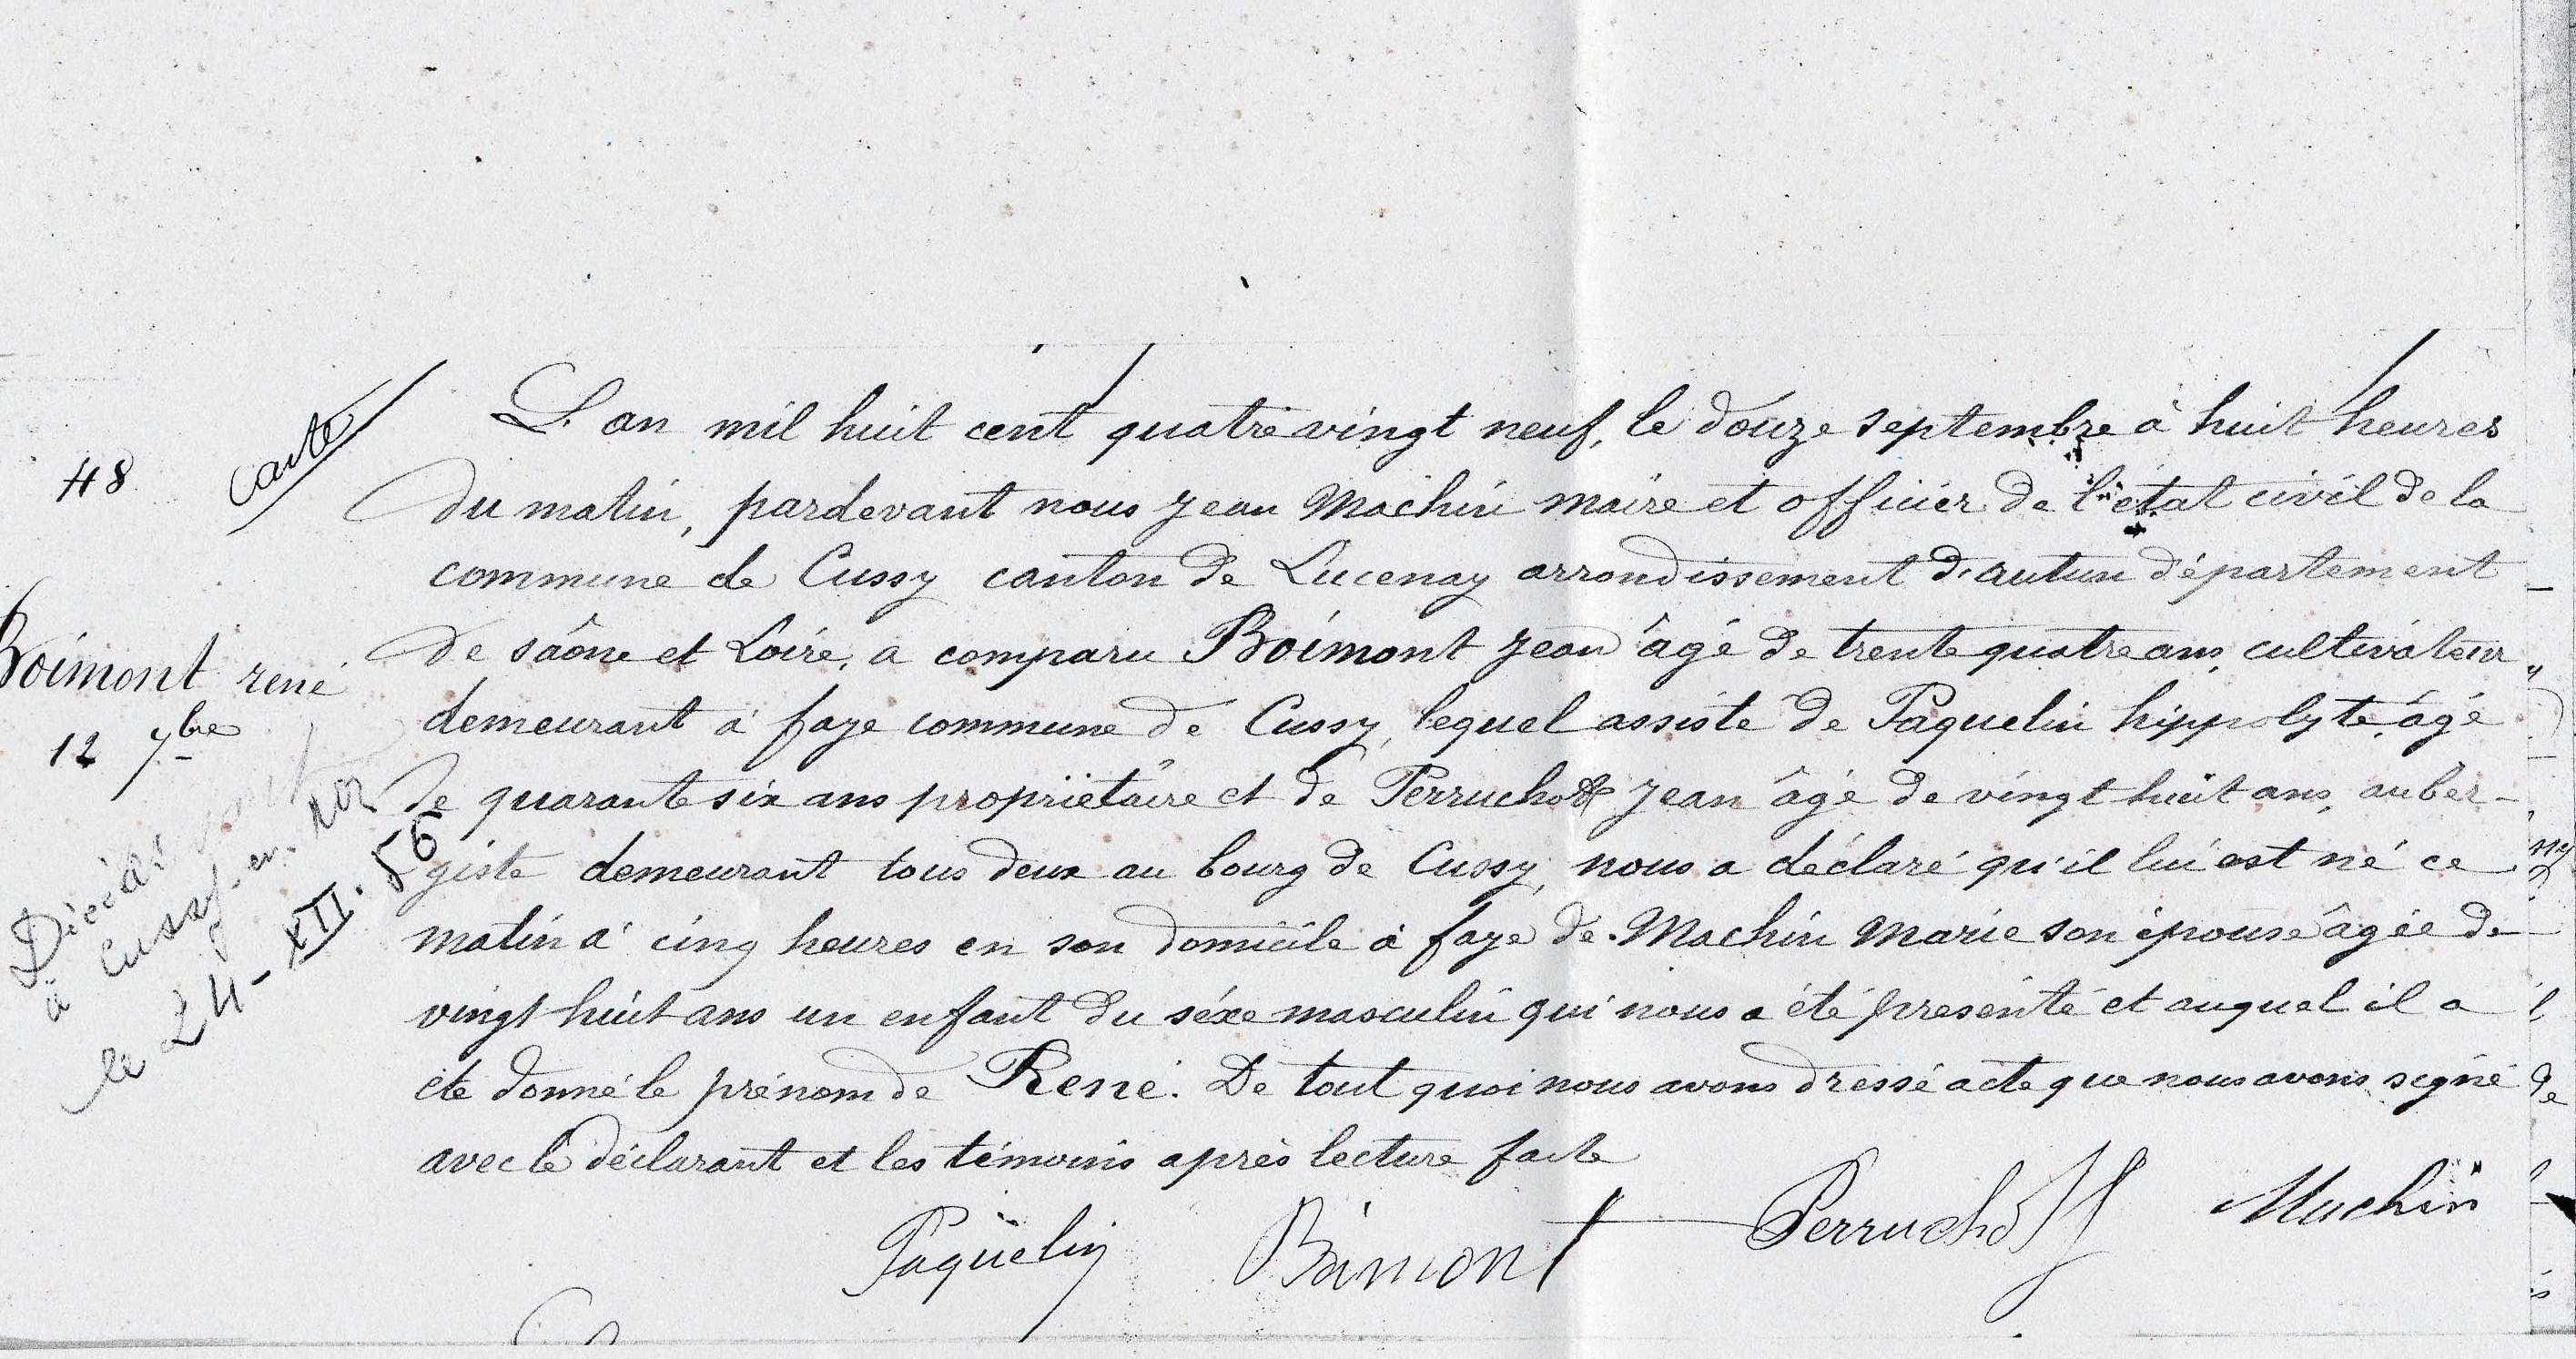 48
carte
Boimont rené
12 7bre
Décédé
à Cussy-en-
le 24-XII.56
L'an mil huit cent quatre vingt neuf, le douze septembre à huit heures
du matin, pardevant nous Jean Machin maire et officier de l'état civil de la
commune de Cussy canton de Lucenay arrondissement d'autun département
de saône et Loire, a comparu Boimont Jean âgé de trente quatre ans, cultivateur
demeurant à faye commune de Cussy, lequel assisté de Paquelin hippolyte, âgé
de quarante six ans propriétaire et de Perruchot Jean âgé de vingt huit ans, auber-
giste demeurant tous deux au bourg de Cussy, nous a déclaré qu'il lui est né ce
matin à cinq heures en son domicile à faye de Machin Marie son épouse âgée de
vingt huit ans un enfant du séxe masculin qui nous a été présenté et auquel il a
été donné le prénom de René. De tout quoi nous avons dressé acte que nous avons signé
avec le déclarant et les témoins après lecture faite
Paquelin Boimont Perruchot Machin